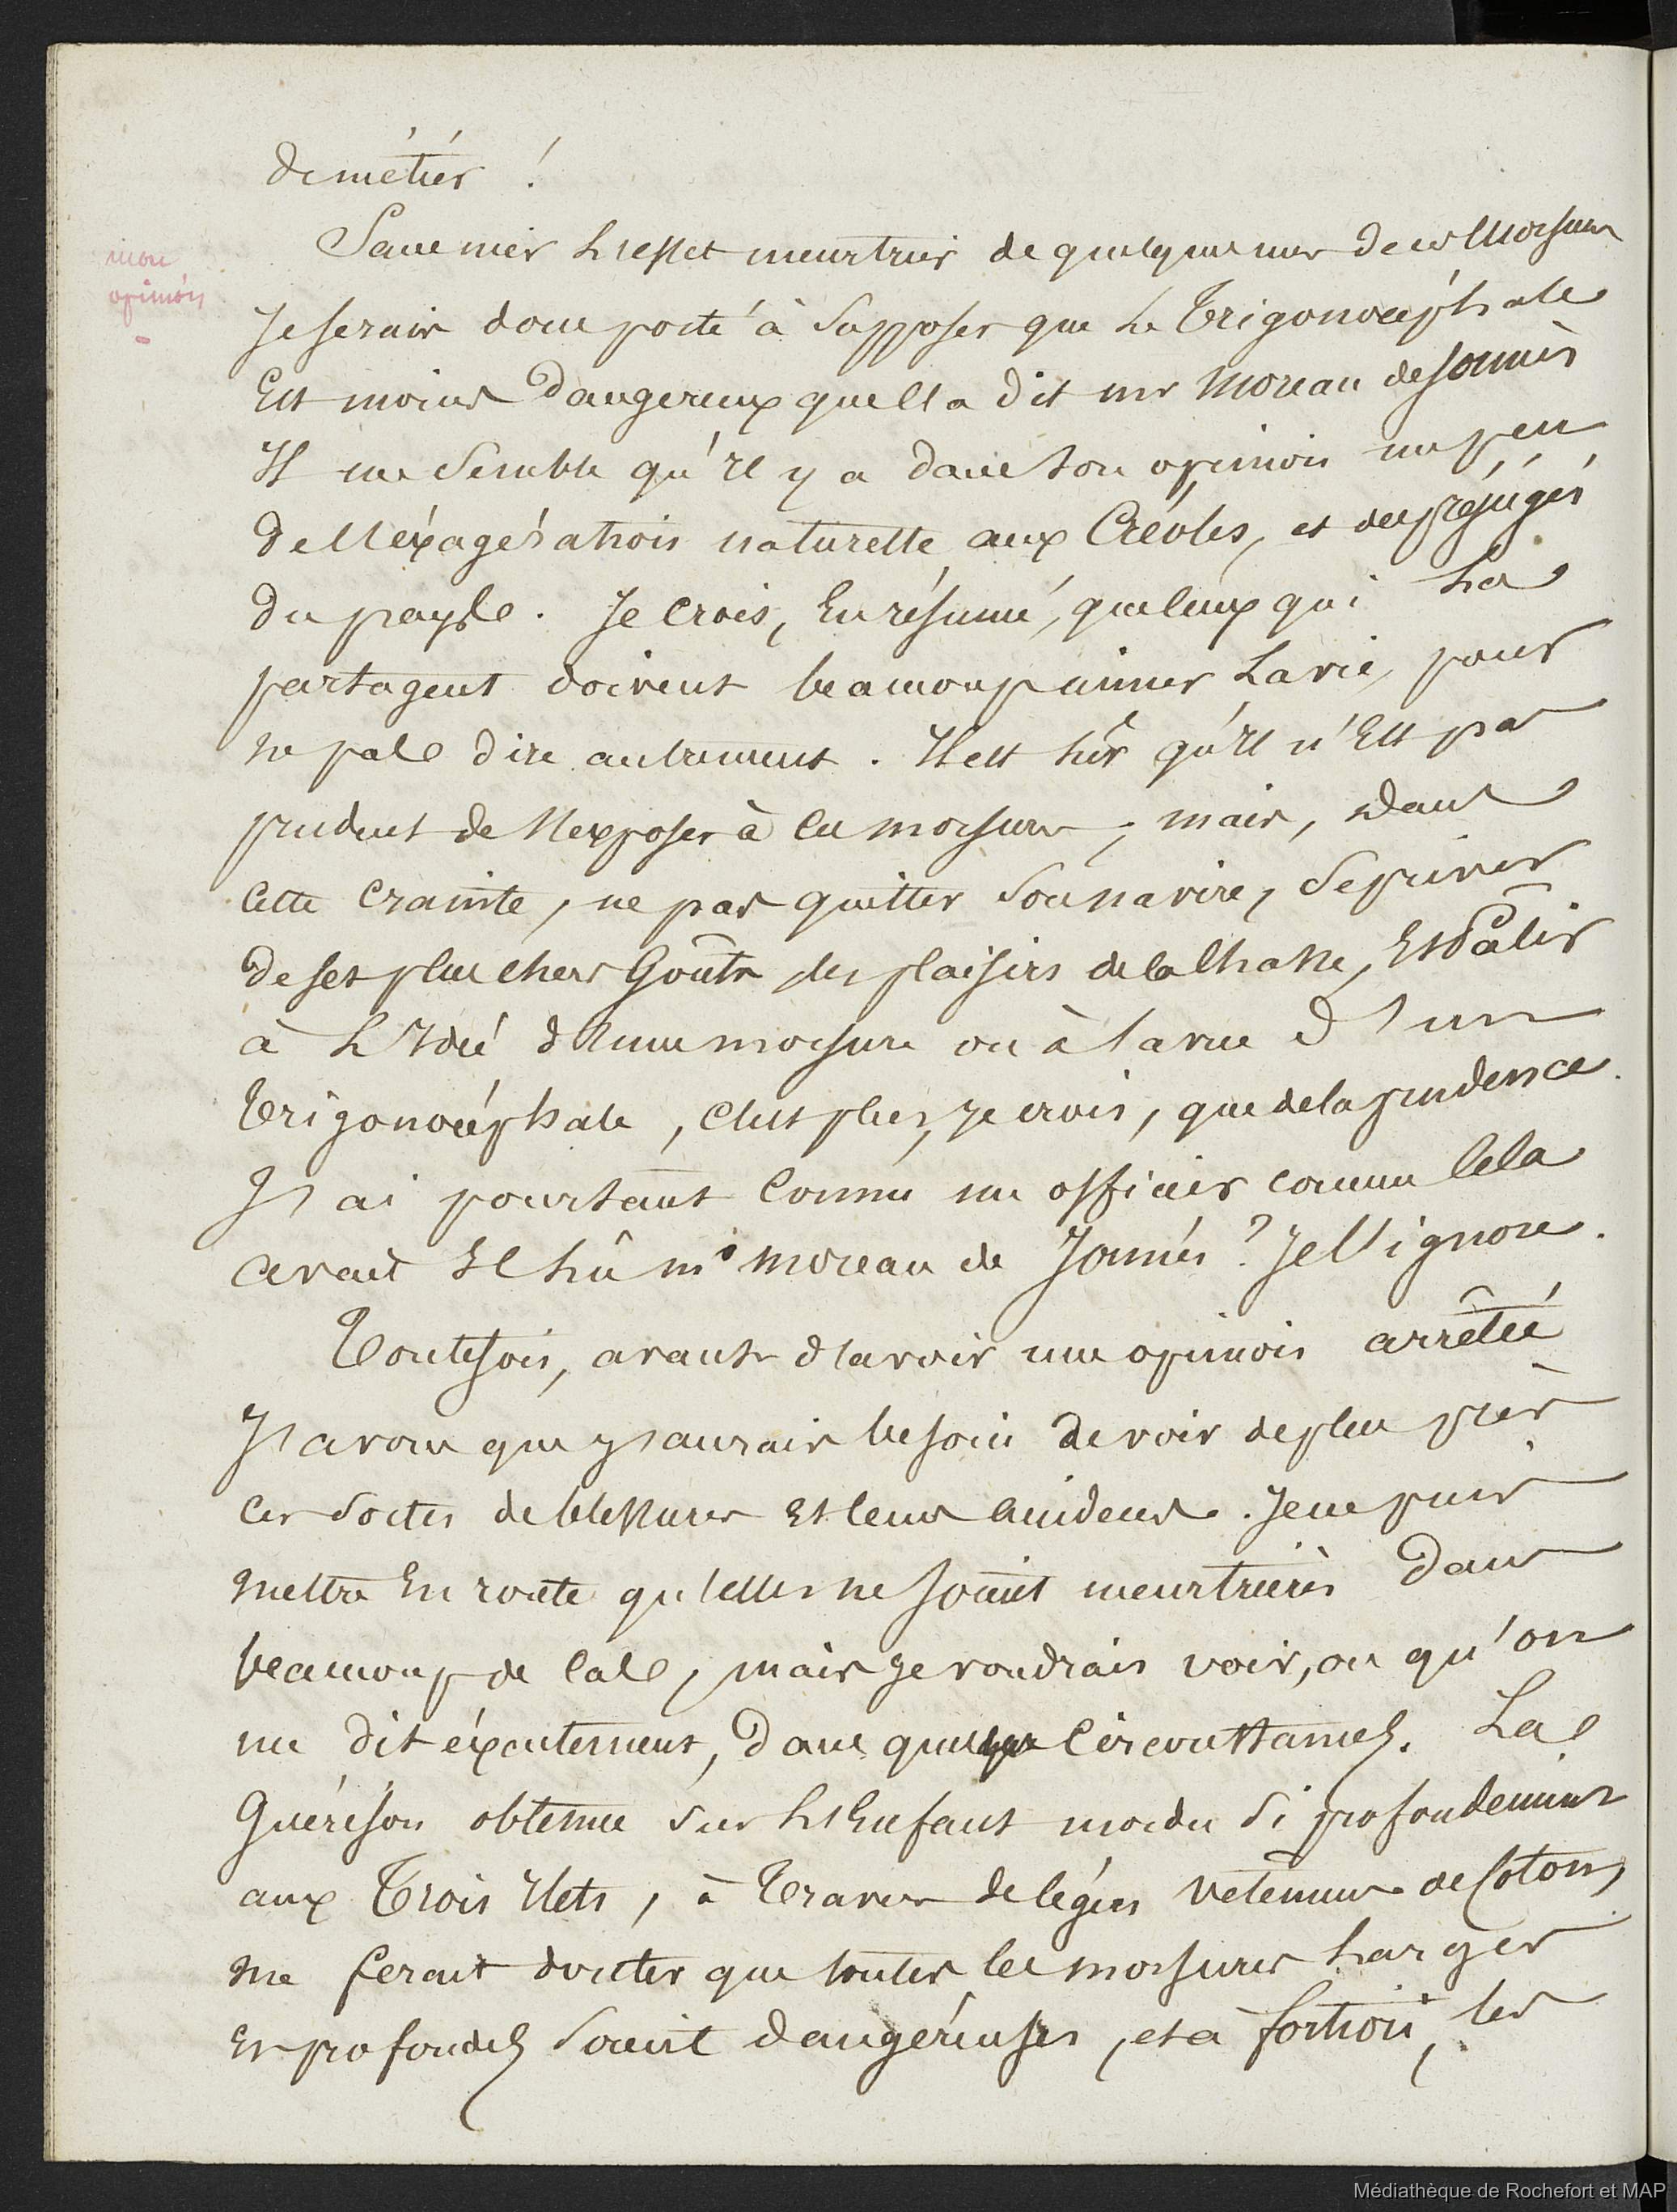 de métier !
mon
opinion
Sans nier l'effet meurtrier de quelques unes de ces Morsures
Je serais donc porté à Supposer que le Trigonocéphale
Est moins Dangereux que l'a dit mr Moreau de Jonnès
Il me Semble qu'il y a dans son opinion un peu
De l'éxagération naturelle aux Créoles, et des préjugés
Du pays. Je Crois, En résumé, que ceux qui la
partagent doivent beaucoup aimer La vie, pour
ne pas Dire autrement. Il est sûr qu'il n'Est pas
prudent de s'exposer à la morsure, mais, Dans
Cette Crainte, ne pas quitter Son navire, Se priver
De ses plus chers Goûts, les plaisirs de la Chasse, Et Pâlir
à L'Idée d'une morsure ou à la vue d'un
Trigonocéphale, C'est plus, je crois, que de la prudence
J'ai pourtant Connu un officier comme Cela
avait Il lu mr Moreau de Jonnès ? Je l'ignore.
Toutefois, avant d'avoir une opinion arrêtée
J'avoue que j'aurais besoin De voir de plus près
Ces Sortes de blessures Et leurs accidents. Je ne puis
mettre En doute qu'elles ne soient meurtrières Dans
beaucoup de Cas, mais je voudrais voir, ou qu'on
me dit éxactement, Dans quelles Circonstances. La
Guérison obtenue Sur L'Enfant mordu Si profondément
aux Trois Ilets, à Travers de légers vêtements de Coton,
me ferait douter que toutes les morsures larges
Et profondes Soient Dangéreuses, et à fortiori, les
Médiathèque de Rochefort et MAP